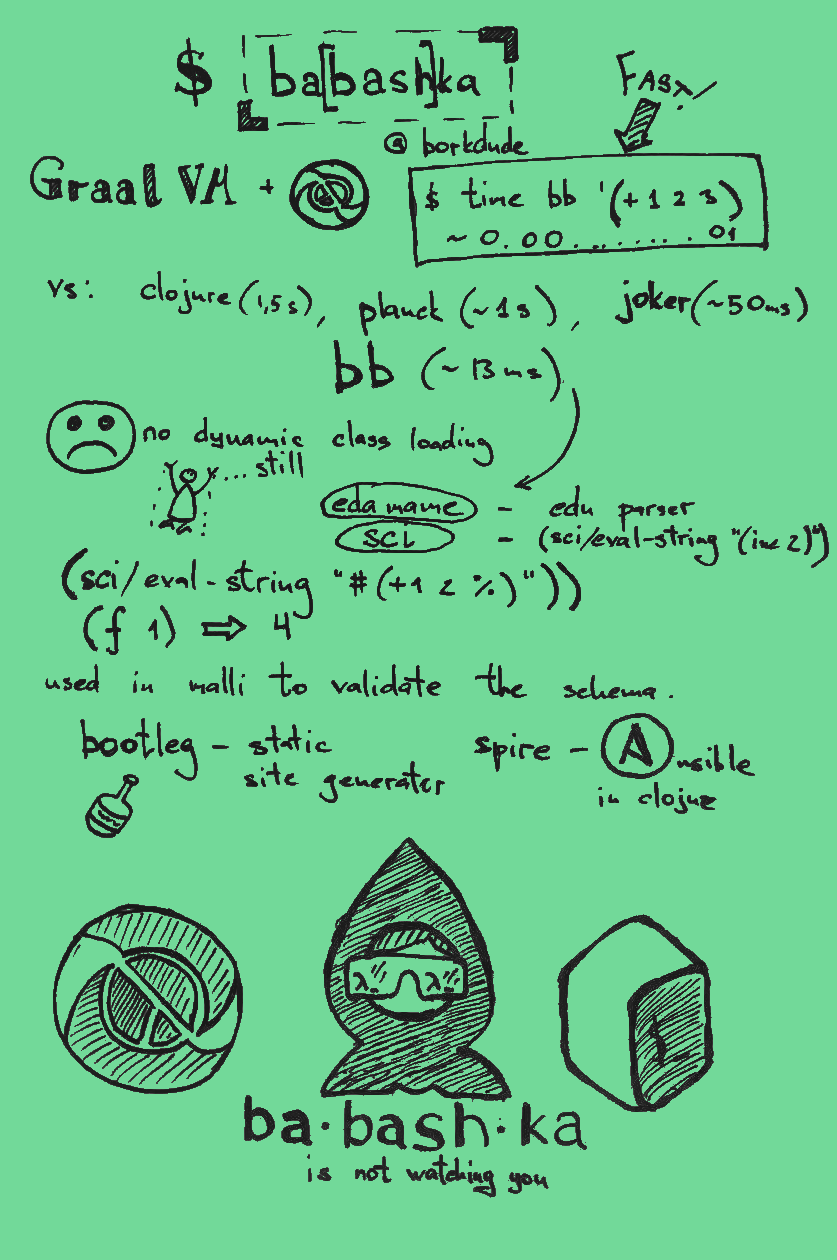 $ ba[bash]ka
FAST!
@ borkdude
Graal VM +
$ time bb '(+ 1 2 3)
~ 0.00.........01
vs: clojure (1,5 s), planck (~1 s), joker (~50ms)
bb (~13 ms)
no dynamic class loading
...still
edamame - edn parser
SCI - (sci/eval-string "(inc 2)")
(sci/eval-string "#(+1 2 %)"))
(f 1) ⇒ 4
used in malli to validate the schema.
bootleg - static site generater
spire - Ansible in clojure
λ λ
$
ba·bash·ka
is not watching you